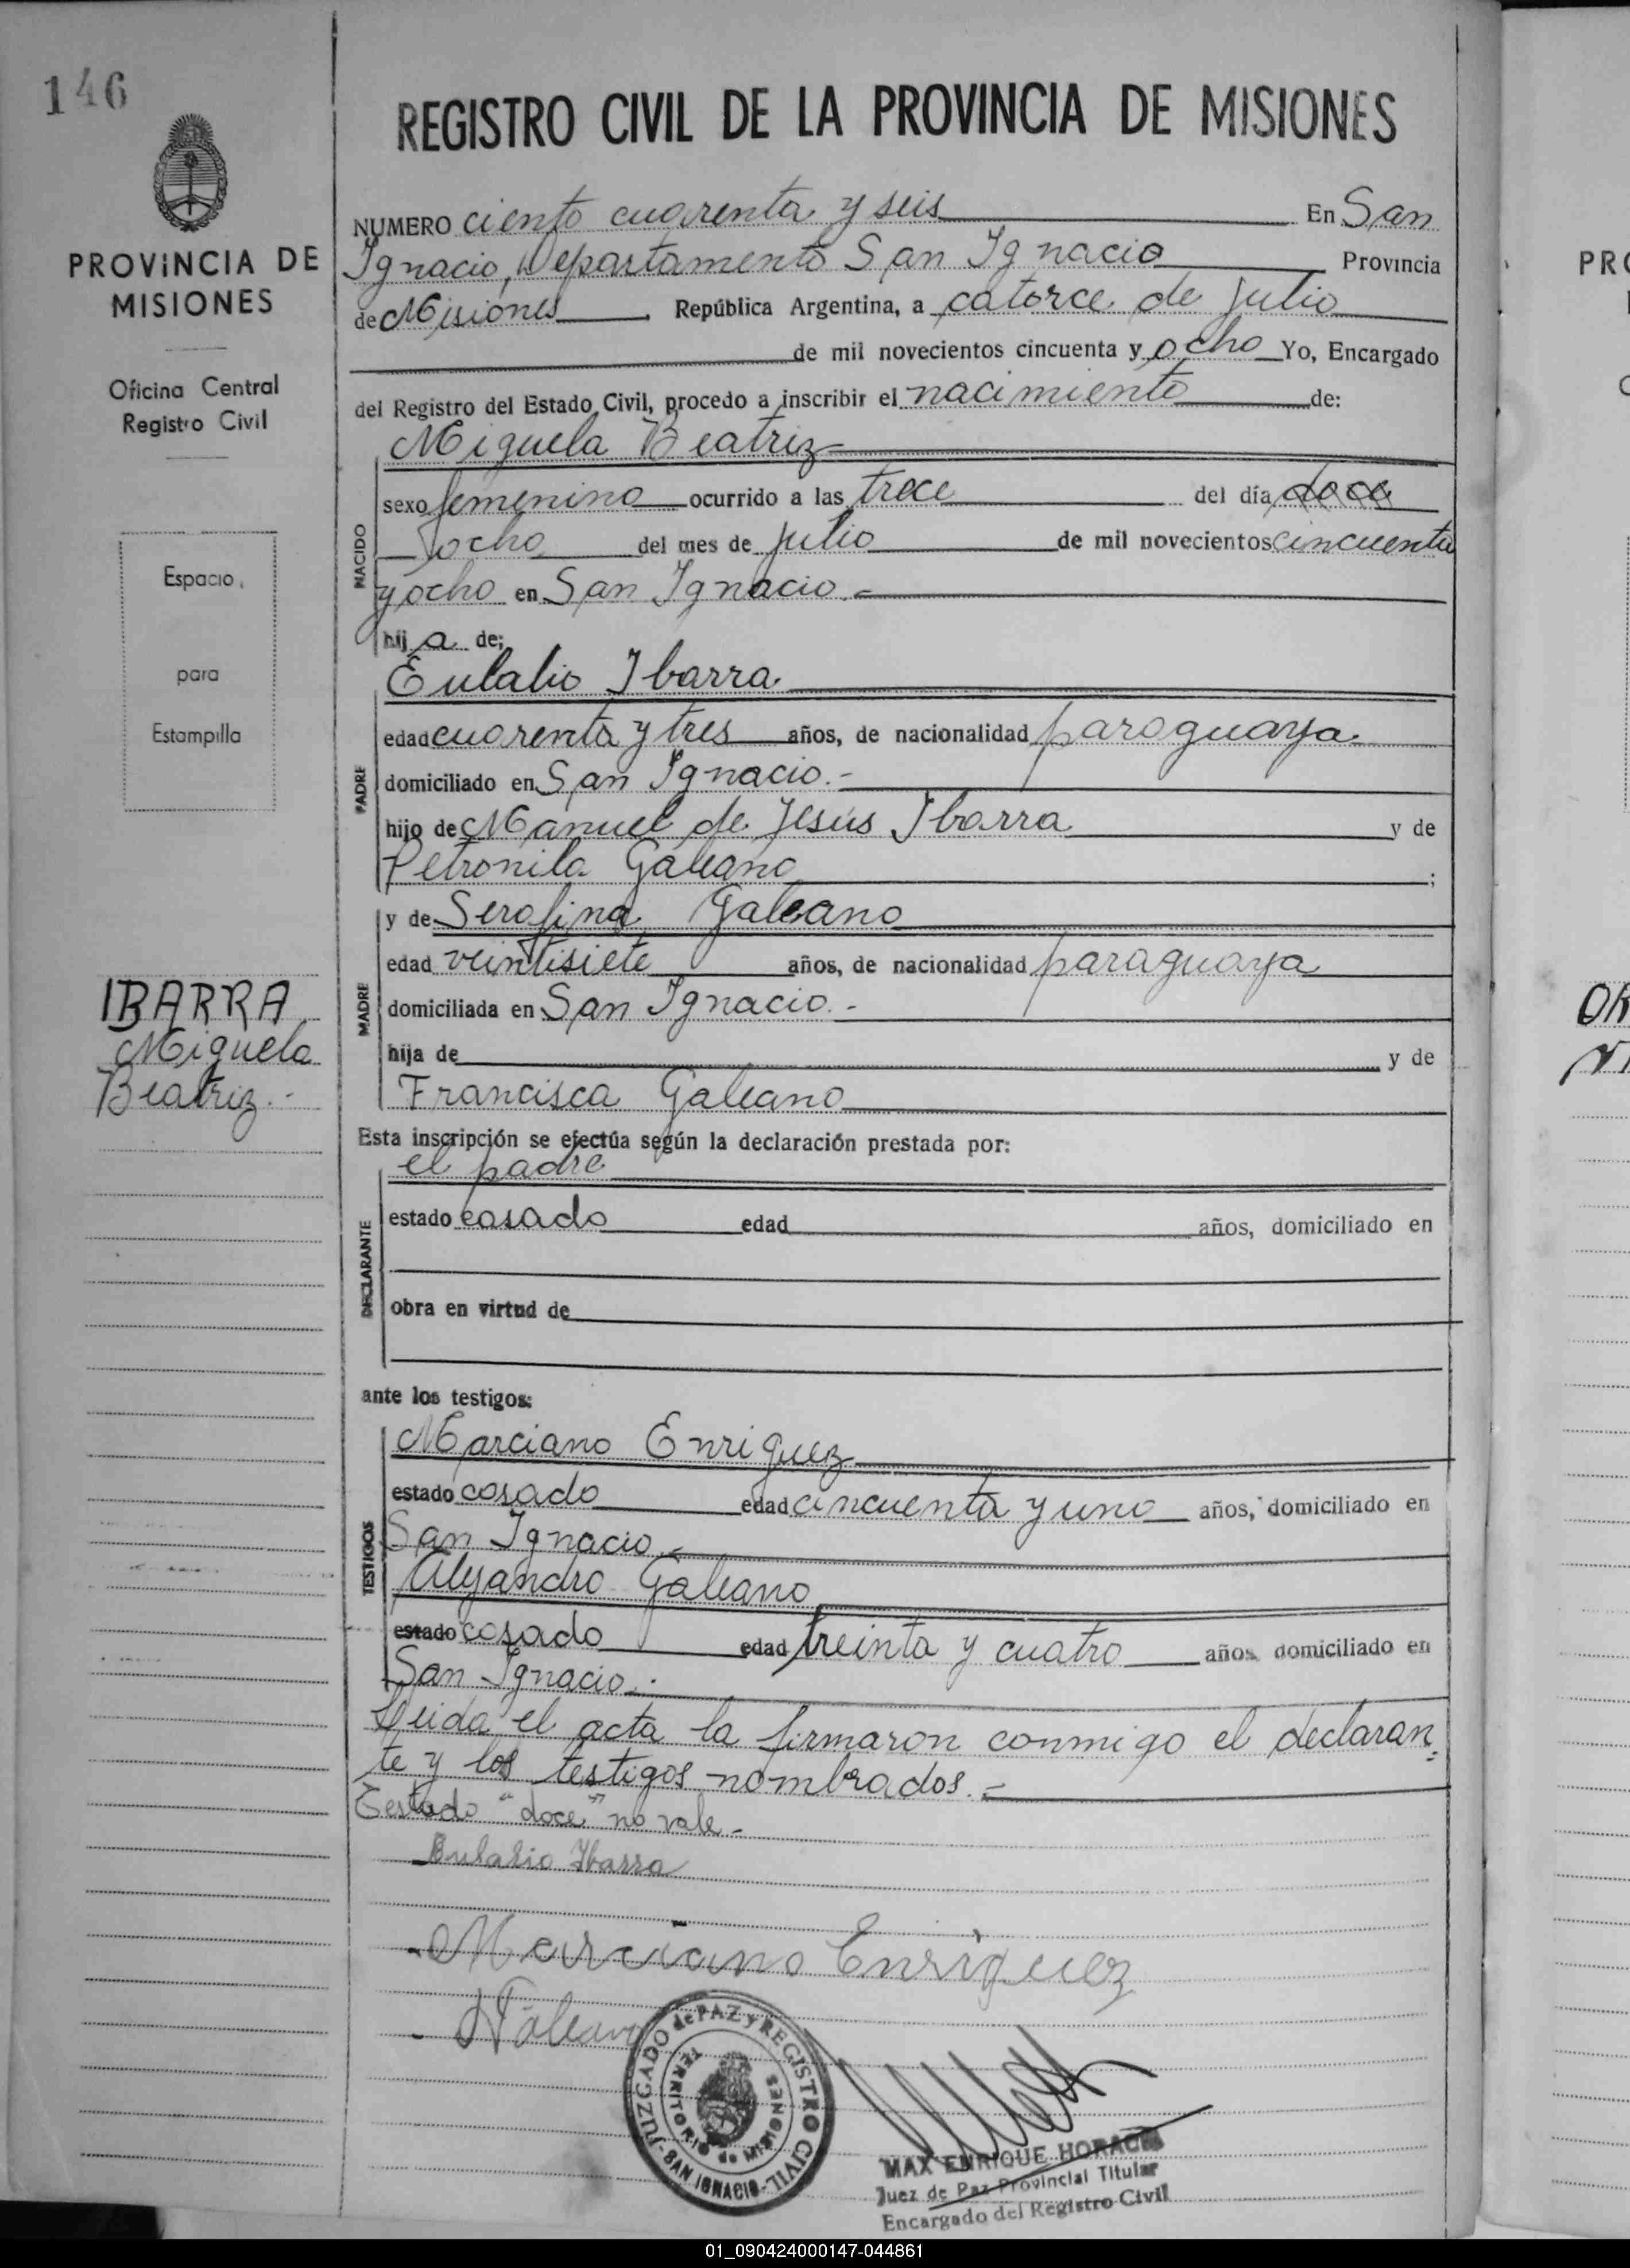 146
PROVINCIA DE
MISIONES
Oficina Central
Registro Civil
Espacio
para
Estampilla
IBARRA
Miguela
Beatriz.-
REGISTRO CIVIL DE LA PROVINCIA DE MISIONES
NUMERO ciento cuarenta y seis En San
Ignacio, Departamento San Ignacio Provincia
de Misiones, República Argentina, a catorce de julio
de mil novecientos cincuenta y ocho Yo, Encargado
del Registro del Estado Civil, procedo a inscribir el nacimiento de:
Miguela Beatriz
NACIDO
sexo femenino ocurrido a las trece del día doce
ocho del mes de julio de mil novecientos cincuenta
y ocho en San Ignacio.-
hija de;
Eulalio Ibarra
PADRE
edad cuarenta y tres años, de nacionalidad paraguaya
domiciliado en San Ignacio.-
hijo de Manuel de Jesús Ibarra y de
Petronila Galeano;
y de Serafina Galeano
MADRE
edad veintisiete años, de nacionalidad paraguaya
domiciliada en San Ignacio.-
hija de y de
Francisca Galeano
Esta inscripción se efectúa según la declaración prestada por:
el padre
DECLARANTE
estado casado edad años, domiciliado en
obra en virtud de
ante los testigos:
Marciano Enriquez
TESTIGOS
estado casado edad cincuenta y uno años, domiciliado en
San Ignacio.-
Alejandro Galeano
estado casado edad treinta y cuatro años domiciliado en
San Ignacio.-
Leida el acta la firmaron conmigo el declaran-
te y los testigos nombrados.-
Testado "doce" no vale-
Eulalio Ibarra
Marciano Enriquez
Galeano
JUZGADO de PAZ y REGISTRO CIVIL - SAN IGNACIO -
TERRITORIO de MISIONES
MAX ENRIQUE HORACH
Juez de Paz Provincial Titular
Encargado del Registro Civil
PRO
OR
01_090424000147-044861